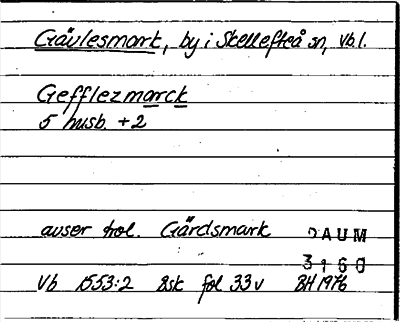 Gävlesmark, by i Skellefteå sn, Vb.l.
Gefflezmarck
5 husb. + 2
avser trol. Gärdsmark
DAUM
3160
Vb 1553:2 Bsk fol 33v BH 1976